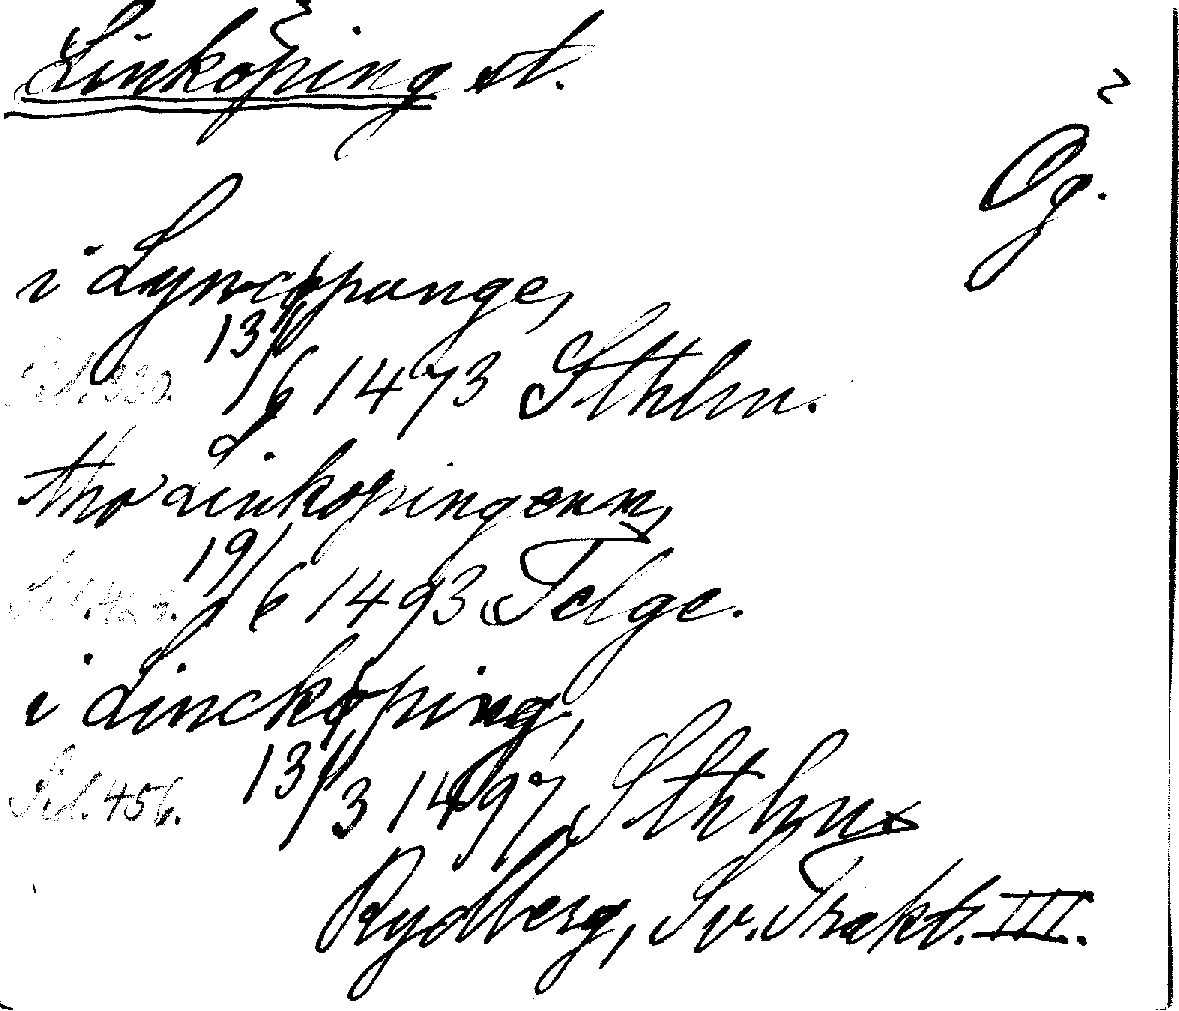 Linköping st.
Ög.
i Lyncøpunge,
13/6 1473 Sthlm.
tho Linkøpingenn,
19/6 1493 Telge.
i Linckøping,
Sid. 456. 13/3 1497 Sthlm
Rydberg, Sv. Trakt. III.